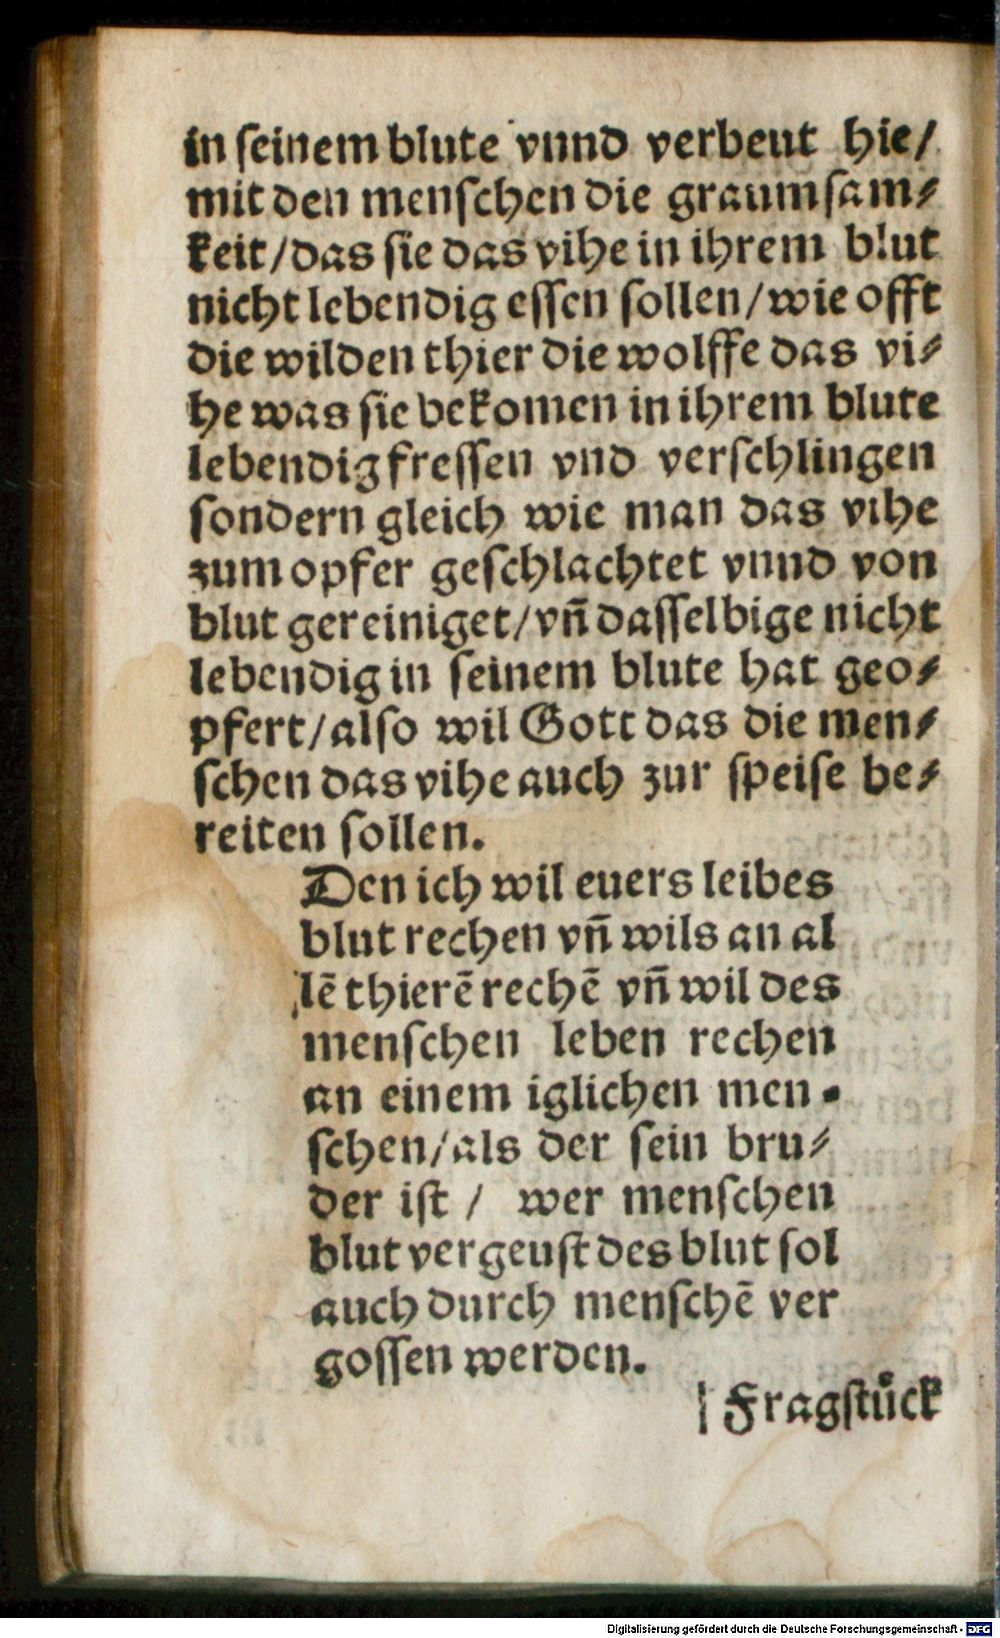 in seinem blute vnnd verbeut hie/
mit den menschen die graumsam⸗
keit/das sie das vihe in ihrem blut
nicht lebendig essen sollen/wie offt
die wilden thier die wolffe das vi⸗
he was sie bekomen in ihrem blute
lebendig fressen vnd verschlingen
sondern gleich wie man das vihe
zum opfer geschlachtet vnnd von
blut gereiniget/vn̄ dasselbige nicht
lebendig in seinem blute hat geo⸗
pfert/also wil Gott das die men⸗
schen das vihe auch zur speise be⸗
reiten sollen.
Den ich wil euers leibes
blut rechen vn̄ wils an al
lē thierē rechē vn̄ wil des
menschen leben rechen
an einem iglichen men⸗
schen/als der sein bru⸗
der ist / wer menschen
blut vergeust des blut sol
auch durch menschē ver
gossen werden.
Fragstuͤck
Digitalisierung gefördert durch die Deutsche Forschungsgemeinschaft - DFG